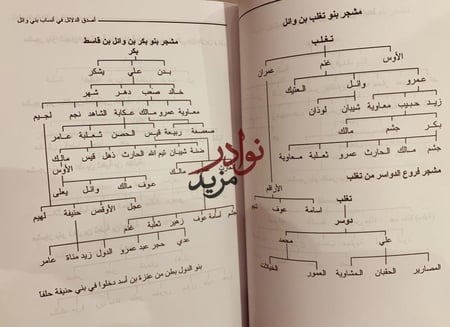 مشجر بنو تغلب بن وائل
تغلب
الأوس غنم عمران
عمرو وائل العتيك
زيد حبيب معاوية شيبان لوذان
بكر جشم مالك
جشم مالك الحارث عمرو ثعلبة معاوية
الأراقم
مشجر فروع الدواسر من تغلب
تغلب
أسامة عوف تيم
دوسر
علي محمد
المصارير الحقبان المشاوية العمور الخييلات
أصدق الدلائل في أنساب بني وائل
مشجر بنو بكر بن وائل بن قاسط
بكر
بدن علي يشكر
خالد صعب دهر شهر
معاوية عمرو مالك عكابة الشاهد نجم لجيم
صعصعة ربيعة قيس الحصن ثعلبة عامر
ضنة شيبان تيم الله الحارث ذهل قيس مالك
مالك الأوس
عوف مالك وائل يعلى
عجل الأوقص حنيفة لهيم
جشم أسامة عوف زهير ثعلبة غنم
عدي حجر عبد عمرو الدول زيد مناة عامر
بنو الدول بطن من عنزة بن أسد دخلوا في بني حنيفة حلفاً
نوادر
مزيد